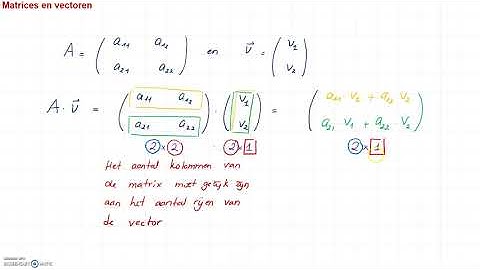 Matrices en vectoren
A = ( a₁₁ a₁₂ ; a₂₁ a₂₂ ) en v⃗ = ( v₂ ; v₂ )
A · v⃗ = ( a₁₁ a₁₂ ; a₂₁ a₂₂ ) · ( v₁ ; v₂ ) = ( a₁₁ · v₁ + a₁₂ v₂ ; a₂₁ v₁ + a₂₂ · v₂ )
2 x 2 2 x 1 2 x 1
Het aantal kolommen van
de matrix moet gelijk zijn
aan het aantal rijen van
de vector